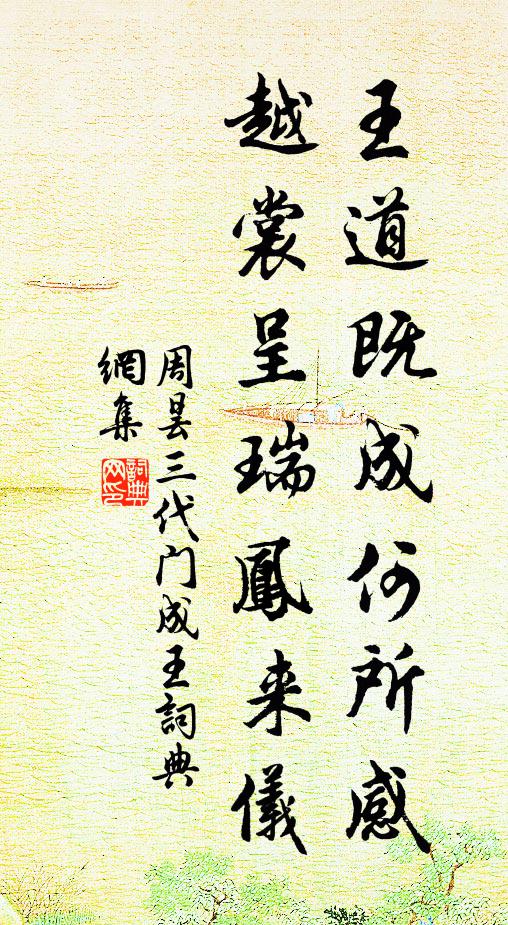 王道既成何所感
越裳呈瑞鳳来儀
周昙三代门成王詞典
網集
詞典
网印